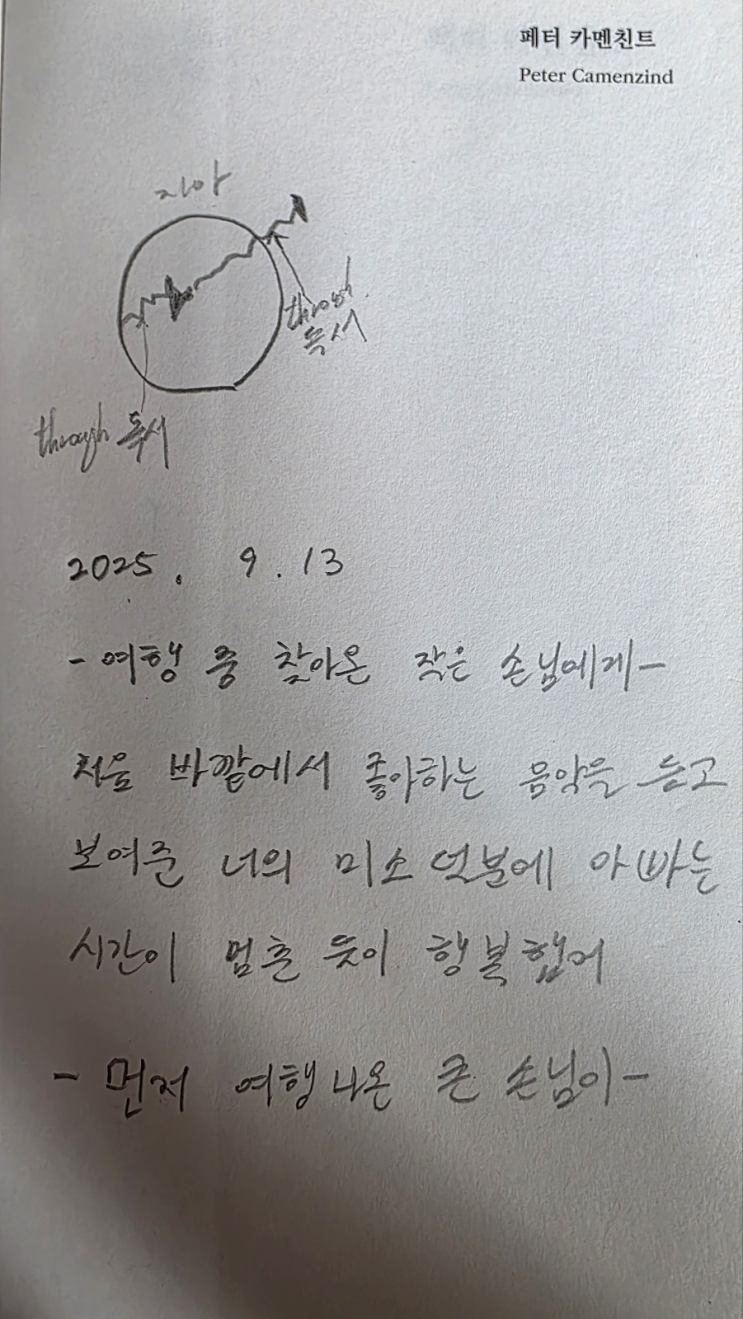 페터 카멘친트
Peter Camenzind
자아
through 독서
through 독서
2025. 9. 13
- 여행 중 찾아온 작은 손님에게 -
처음 바깥에서 좋아하는 음악을 듣고
보여준 너의 미소 덕분에 아빠는
시간이 멈춘 듯이 행복했어
- 먼저 여행 나온 큰 손님이 -